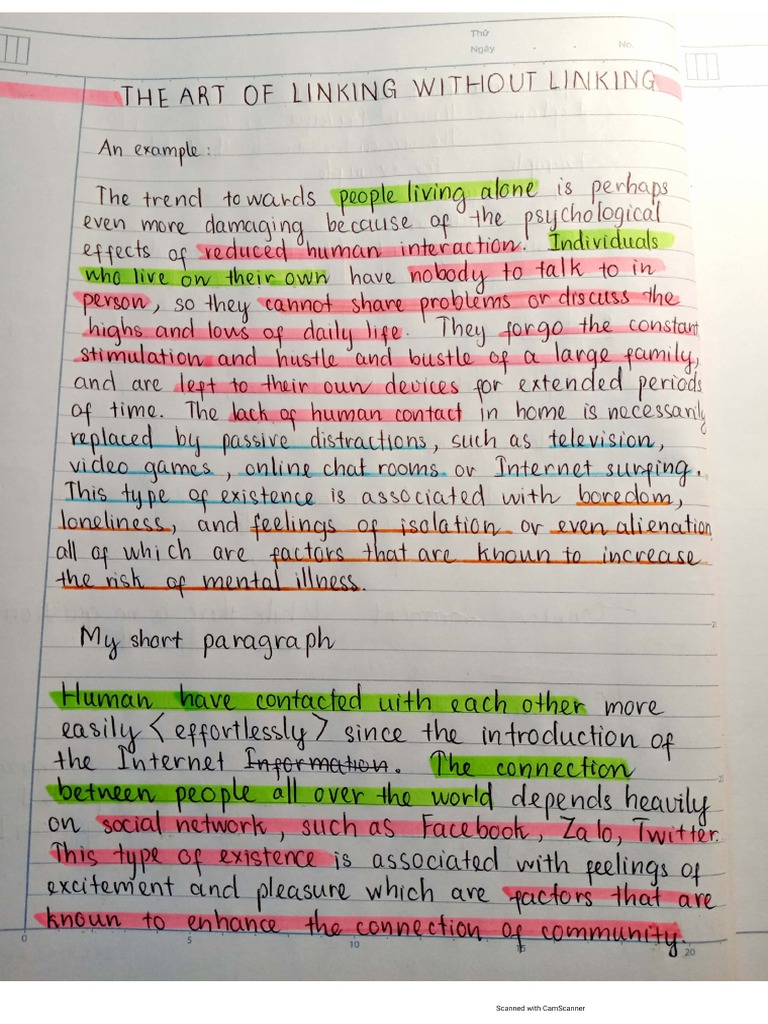 Thứ
Ngày . . No.
THE ART OF LINKING WITHOUT LINKING
An example:
The trend towards people living alone is perhaps
even more damaging because of the psychological
effects of reduced human interaction. Individuals
who live on their own have nobody to talk to in
person, so they cannot share problems or discuss the
highs and lows of daily life. They forgo the constant
stimulation and hustle and bustle of a large family,
and are left to their own devices for extended periods
of time. The lack of human contact in home is necessarily
replaced by passive distractions, such as television,
video games, online chat rooms or Internet surfing.
This type of existence is associated with boredom,
loneliness, and feelings of isolation or even alienation
all of which are factors that are known to increase
the risk of mental illness.
My short paragraph
Human have contacted with each other more
easily <effortlessly> since the introduction of
the Internet Information.
The connection
between people all over the world depends heavily
on social network, such as Facebook, Zalo, Twitter.
This type of existence is associated with feelings of
excitement and pleasure which are factors that are
known to enhance the connection of community.
0 5 10 15 20
Scanned with CamScanner